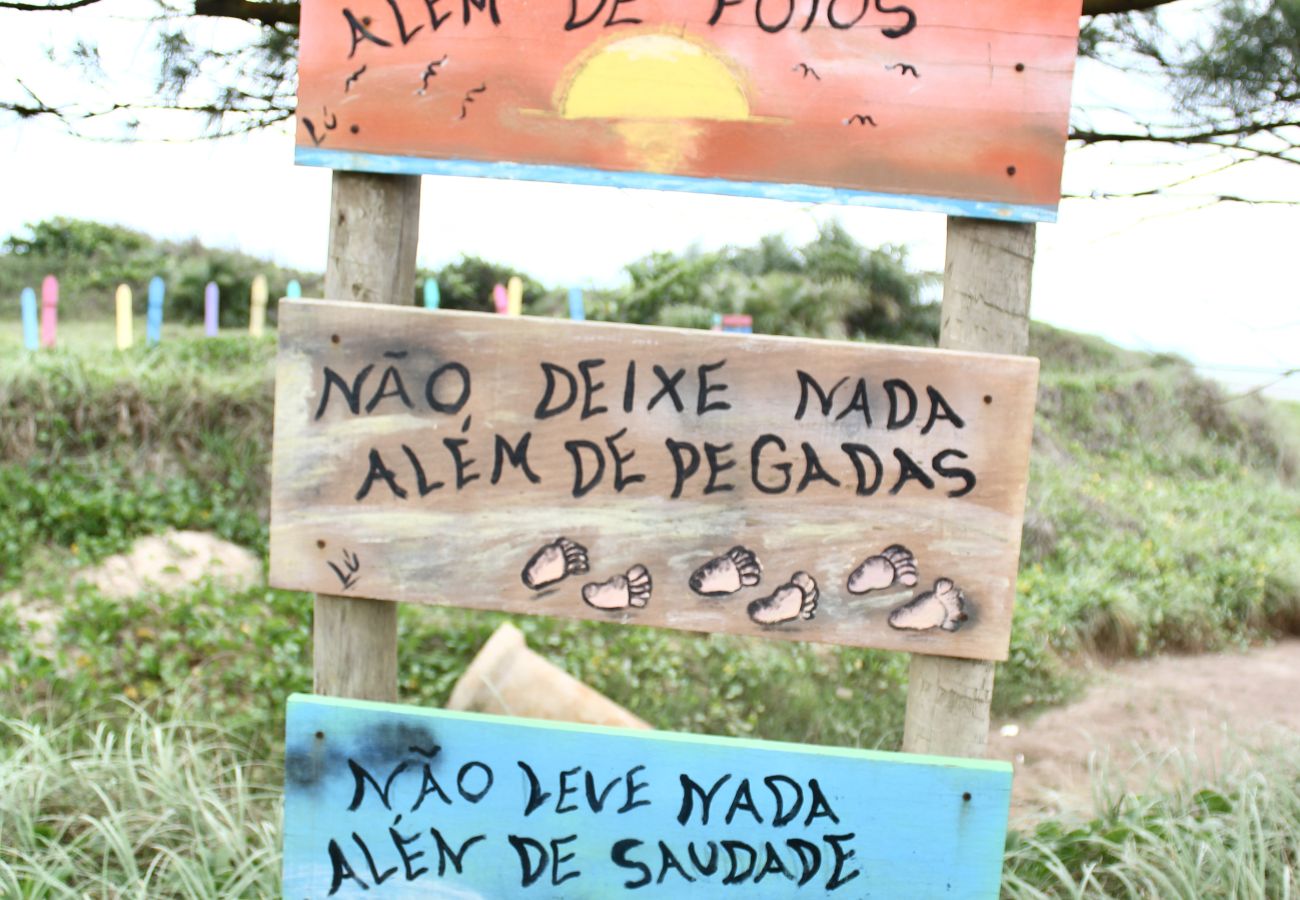 ALÉM DE FOTOS
LÚ
NÃO DEIXE NADA
ALÉM DE PEGADAS
LÚ
NÃO LEVE NADA
ALÉM DE SAUDADE